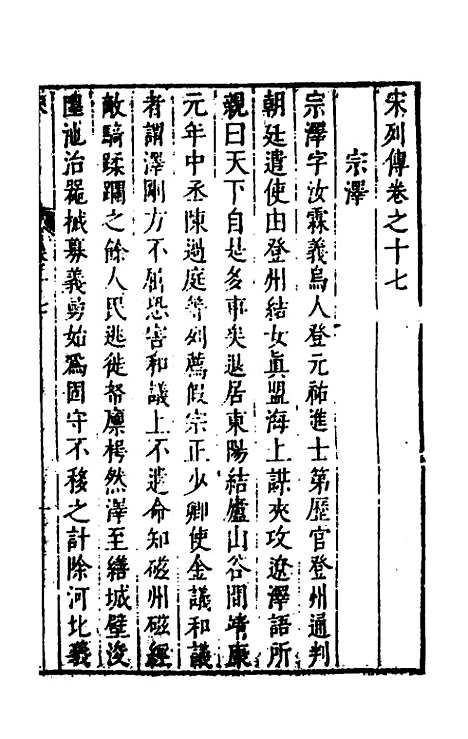 宋列傳卷之十七
宗澤
宗澤字汝霖義烏人登元祐進士第歷官登州通判
朝廷遣使由登州結女真盟海上謀夾攻遼澤語所
親曰天下自是多事矣退居東陽結廬山谷間靖康
元年中丞陳過庭等列薦假宗正少卿使金議和議
者謂澤剛方不屈恐害和議上不遣命知磁州磁經
敵騎蹂躪之餘人民逃徙帑廩枵然澤至繕城壁浚
隍池治器械募義勇始為固守不移之計除河北義